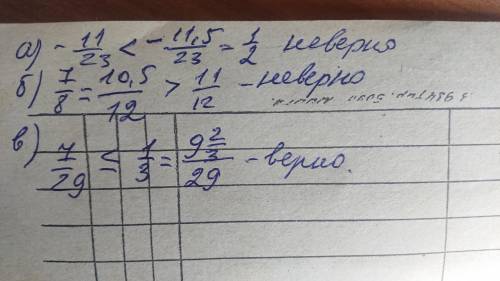 а) - 11/23 < - 11,5/23 = 1/2 неверно
б) 7/8 = 10,5/12 > 11/12 - неверно
в) 7/29 ≤ 1/3 = 9 2/3/29 - верно.